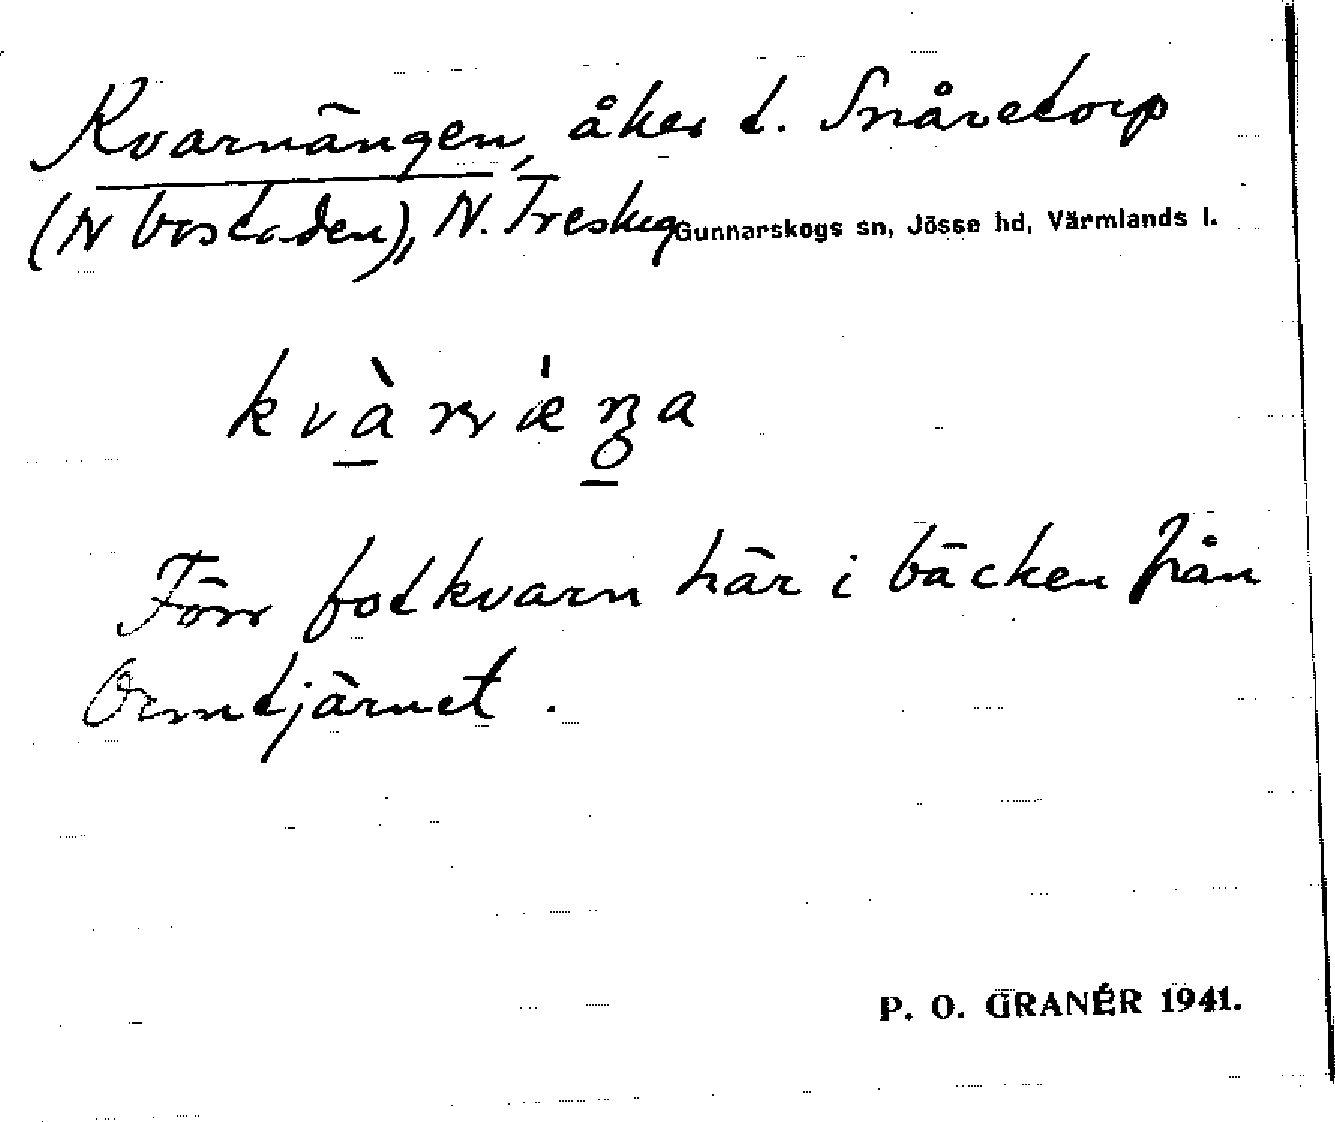 Kvarnängen, åker t. Snåretorp
(N bostaden), N. Treskog Gunnarskogs sn, Jösse hd, Värmlands l.
Förr fotkvarn här i bäcken från
Ormtjärnet.
P. O. GRANÉR 1941.